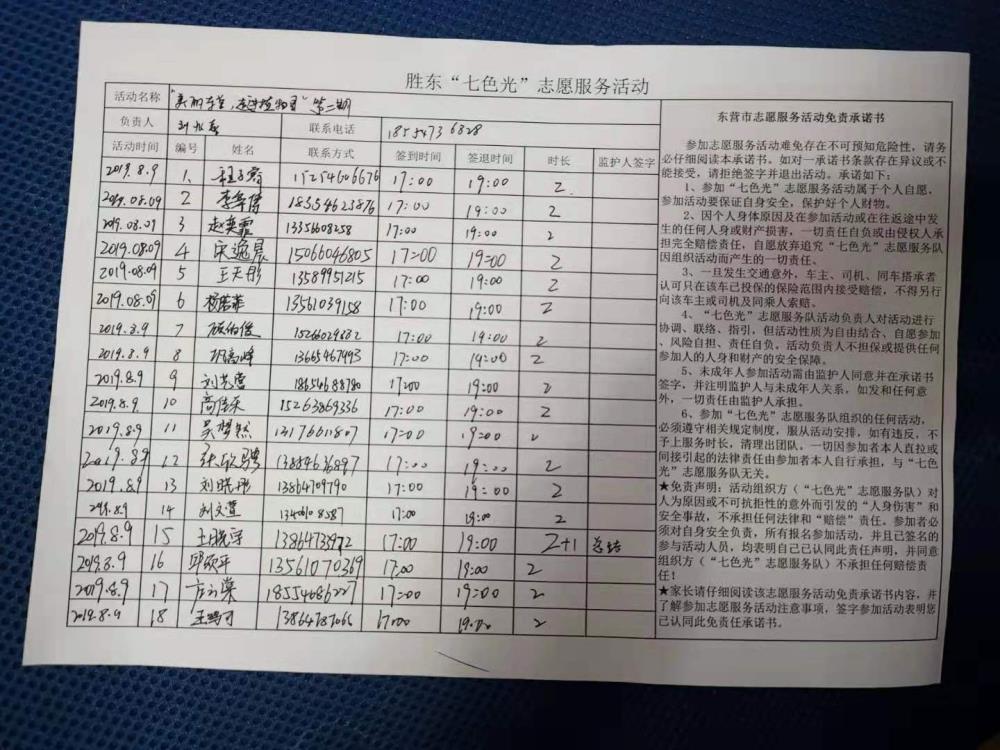 胜东“七色光”志愿服务活动
活动名称 “美丽东营,走进植物园”第二期
负责人 联系电话 18554736828
活动时间 编号 姓名 联系方式 签到时间 签退时间 时长 监护人签字
2019.8.9 1、 15254606676 17:00 19:00 2.
2019.08.09 2 18554623876 17:00 19:00 2
2019.08.09 3 赵奕霏 13356608258 17:00 19:00 2
2019.08.09 4 宋逸晨 15066046805 17:00 19:00 2
2019.08.09 5 王天彤 13589951215 17:00 19:00 2
2019.08.09 6 13561039158 17:00 19:00 2
2019.8.9 7 17:00 19:00 2
2019.8.9 8 胡高峰 13665467993 17:00 19:00 2
2019.8.9 9 18654688780 17:00 19:00 2
2019.8.9 10 15263869336 17:00 19:00 2
2019.8.9 11 吴梦然 13176611807 17:00 19:00 2
2019.8.9 12 张欣骋 13854636897 17:00 19:00 2
2019.8.9 13 刘晓彤 13864709790 17:00 19:00 2
2019.8.9 14 刘文萱 17:00 19:00 2
2019.8.9 15 王晓萍 1386473972 17:00 19:00 2+1 总结
2019.8.9 16 邱颂平 13561070369 17:00 19:00 2
2019.8.9 17 18554686227 17:00 19:00 2
2019.8.9 18 13864787066 17:00 19:00 2
东营市志愿服务活动免责承诺书
参加志愿服务活动难免存在不可预知危险性，请务
必仔细阅读本承诺书。如对一承诺书条款存在异议或不
能接受，请拒绝签字并退出活动。承诺如下：
1、参加“七色光”志愿服务活动属于个人自愿，
参加活动要保证自身安全，保护好个人财物。
2、因个人身体原因及在参加活动或在往返途中发
生的任何人身或财产损害，一切责任自负或由侵权人承
担完全赔偿责任，自愿放弃追究“七色光”志愿服务队
因组织活动而产生的一切责任。
3、一旦发生交通意外，车主、司机、同车搭承者
认可只在该车已投保的保险范围内接受赔偿，不得另行
向该车主或司机及同乘人索赔。
4、“七色光”志愿服务队活动负责人对活动进行
协调、联络、指引，但活动性质为自由结合、自愿参加
、风险自担、责任自负。活动负责人不担保或提供任何
参加人的人身和财产的安全保障。
5、未成年人参加活动需由监护人同意并在承诺书
签字，并注明监护人与未成年人关系，如发和任何意
外，一切责任由监护人承担。
6、参加“七色光”志愿服务队组织的任何活动，
必须遵守相关规定制度，服从活动安排，如有违反，不
予上服务时长，清理出团队。一切因参加者本人直拉或
间接引起的法律责任由参加者本人自行承担，与“七色
光”志愿服务队无关。
★免责声明：活动组织方（“七色光”志愿服务队）对
人为原因或不可抗拒性的意外而引发的“人身伤害”和
安全事故，不承担任何法律和“赔偿”责任。参加者必
须对自身安全负责，所有报名参加活动，并且已签名的
参与活动人员，均表明自己已认同此责任声明，并同意
组织方（“七色光”志愿服务队）不承担任何赔偿责
任！
★家长请仔细阅读该志愿服务活动免责承诺书内容，并
了解参加志愿服务活动注意事项，签字参加活动表明您
已认同此免责任承诺书。